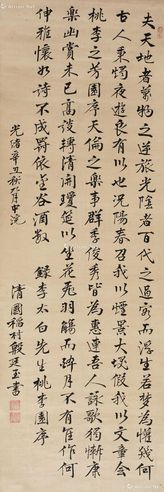 夫天地者萬物之逆旅光陰者百代之過客而浮生若夢為懽幾何
古人秉燭夜遊良有以也況陽春召我以煙景大塊假我以文章會
桃李之芳園序天倫之樂事群季俊秀皆為惠連吾人詠歌獨慚康
樂幽賞未已高談轉清開瓊筵以坐花飛羽觴而醉月不有佳作何
伸雅懷如詩不成罰依金谷酒數 錄李太白先生桃李園序
光緒辛丑秋月 清國稻村 廷玉書